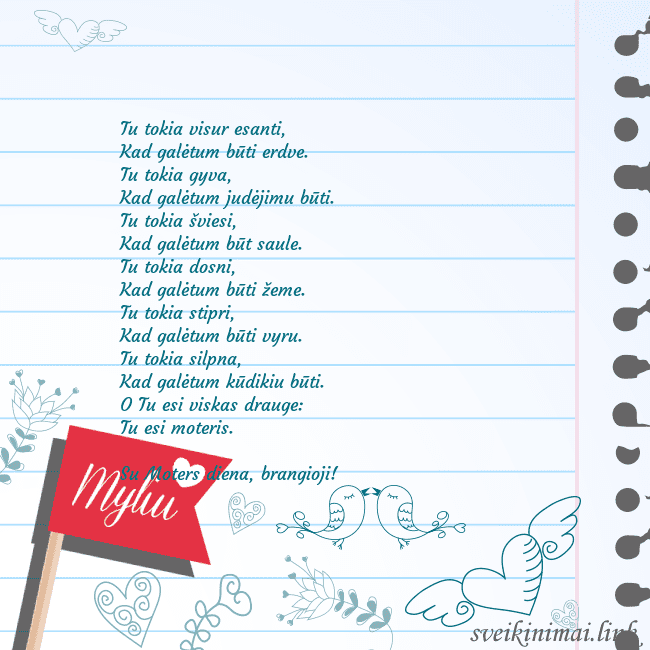 Tu tokia visur esanti,
Kad galėtum būti erdve.
Tu tokia gyva,
Kad galėtum judėjimu būti.
Tu tokia šviesi,
Kad galėtum būt saule.
Tu tokia dosni,
Kad galėtum būti žeme.
Tu tokia stipri,
Kad galėtum būti vyru.
Tu tokia silpna,
Kad galėtum kūdikiu būti.
O Tu esi viskas drauge:
Tu esi moteris.
Su Moters diena, brangioji!
Myliu
sveikinimai.link